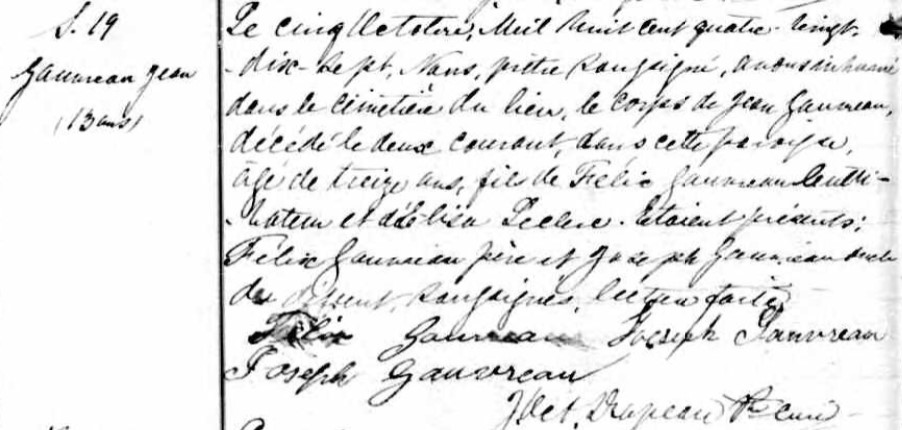 S. 19
Gauvreau Jean
(13 ans)
Le cinq Octobre, Mil huit cent quatre-vingt-
-dix-sept, Nous, prêtre soussigné, avons inhumé
dans le cimetière du lieu, le corps de Jean Gauvreau,
décédé le deux courant, dans cette paroisse,
âgé de treize ans, fils de Félix Gauvreau Culti-
-vateur et d'Elisa Leclerc. Etaient présents:
Félix Gauvreau père et Joseph Gauvreau oncle
du défunt, soussignés, lecture faite
Félix Gauvreau Joseph Gauvreau
Joseph Gauvreau
Drapeau Ptre Curé